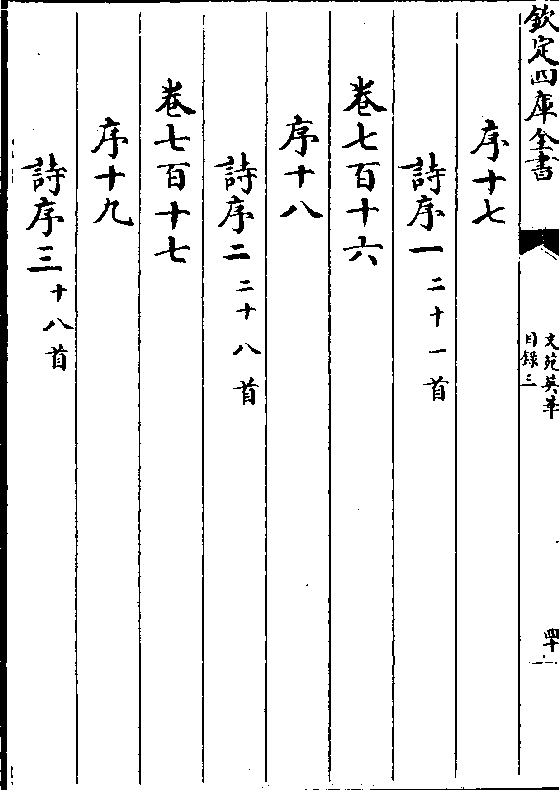 欽定四庫全書
文苑英華
目録三
序十七
詩序一二十一首
卷七百十六
序十八
詩序二二十八首
卷七百十七
序十九
詩序三十八首